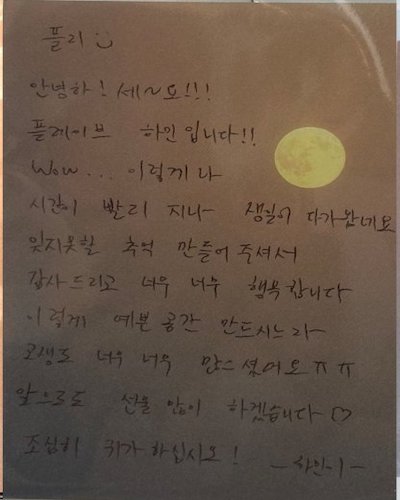 플리 :)
안녕하! 세~요!!!
플레이브 하민입니다!!
Wow... 이렇게나
시간이 빨리 지나 생일이 다가왔네요
잊지못할 추억 만들어주셔서
감사드리고 너무 너무 행복합니다
이렇게 예쁜 공간 만드시느라
고생도 너무 너무 많으셨어요 ㅠㅠ
앞으로도 선물 많이 하겠습니다 ♡
조심히 귀가하십시오!
-하민이-